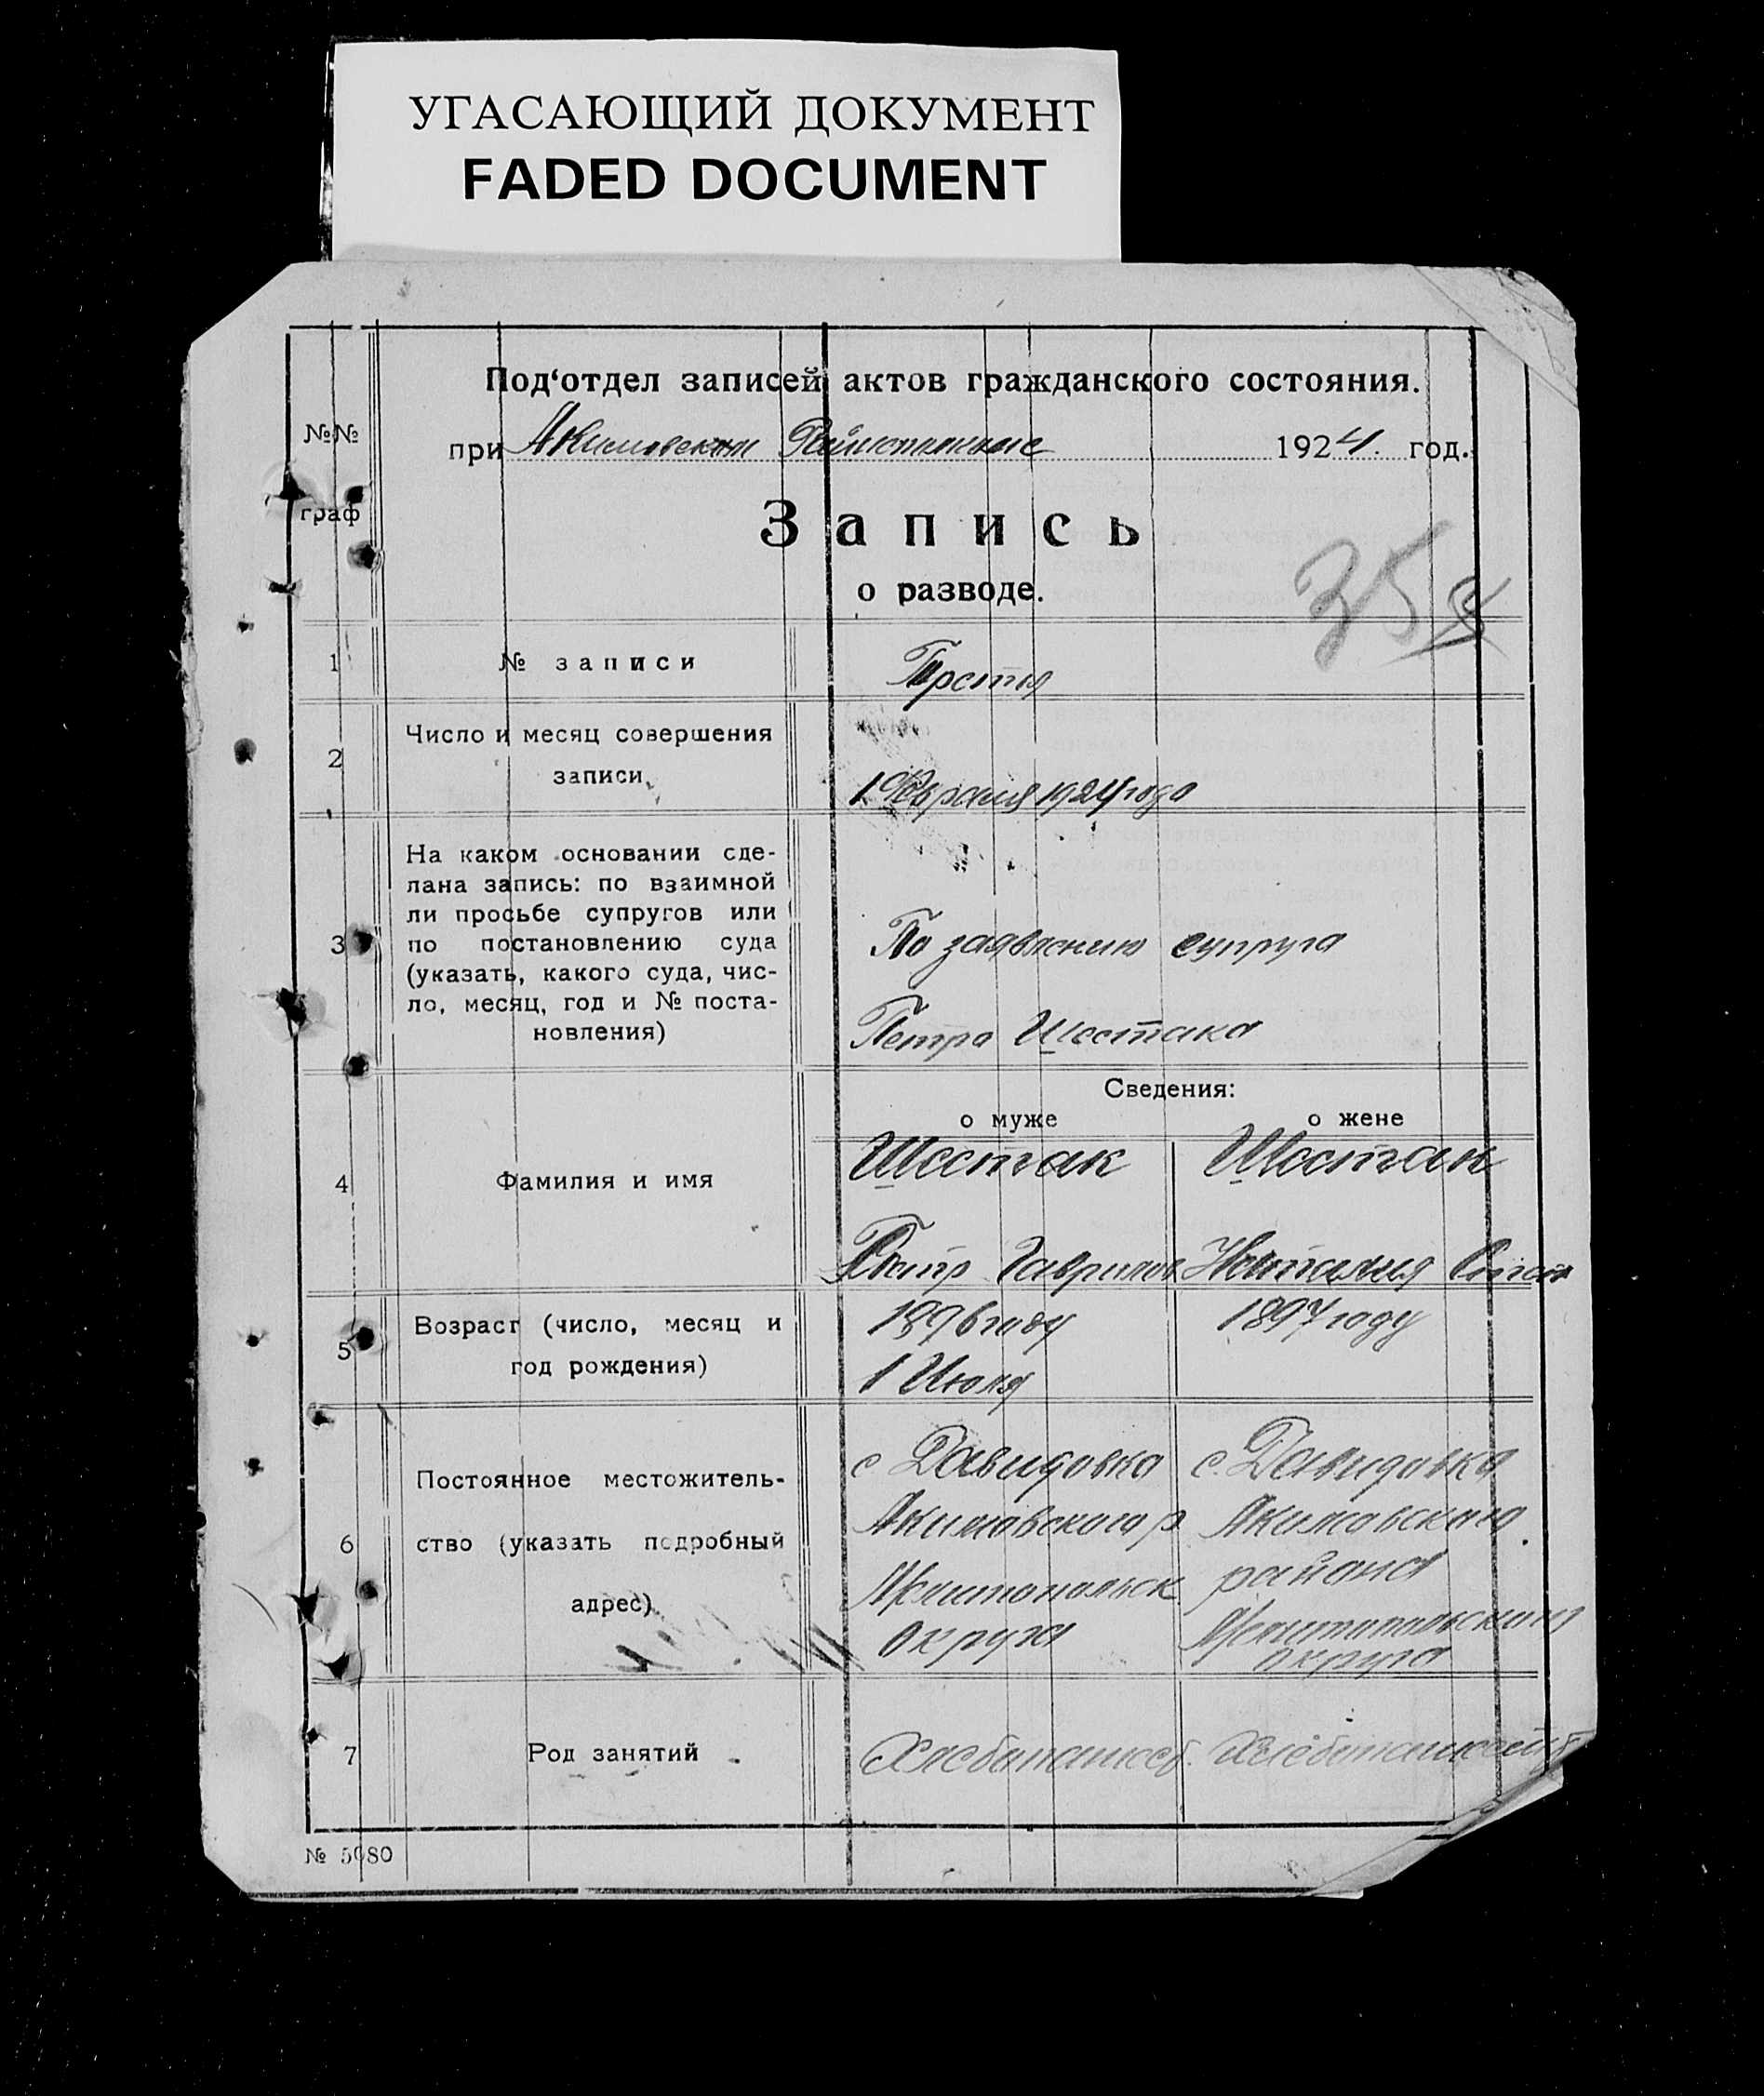 УГАСАЮЩИЙ ДОКУМЕНТ
FADED DOCUMENT
Под‘отдел записей актов гражданского состояния.
№№
граф
при Акимовском 1924. год.
Запись
о разводе.
35
1 № записи Третья
2 Число и месяц совершения
записи
1 Февраля 1924 года
3 На каком основании сде-
лана запись: по взаимной
ли просьбе супругов или
по постановлению суда
(указать, какого суда, чис-
ло, месяц, год и № поста-
новления)
По заявлению супруга
Петра Шестака
Сведения:
о муже о жене
4 Фамилия и имя
Шестак Шестак
Петр Гаврилов Наталия
5 Возраст (число, месяц и
год рождения)
1896 году 1897 году
1 Июля
6 Постоянное местожитель-
ство (указать подробный
адрес)
с Давидовка с. Давидовка
Акимовского р. Акимовского
Мелитопольск района
округа Мелитопольского
округа
7 Род занятий
Хлебопашеб. Хлебопашество
№ 5080